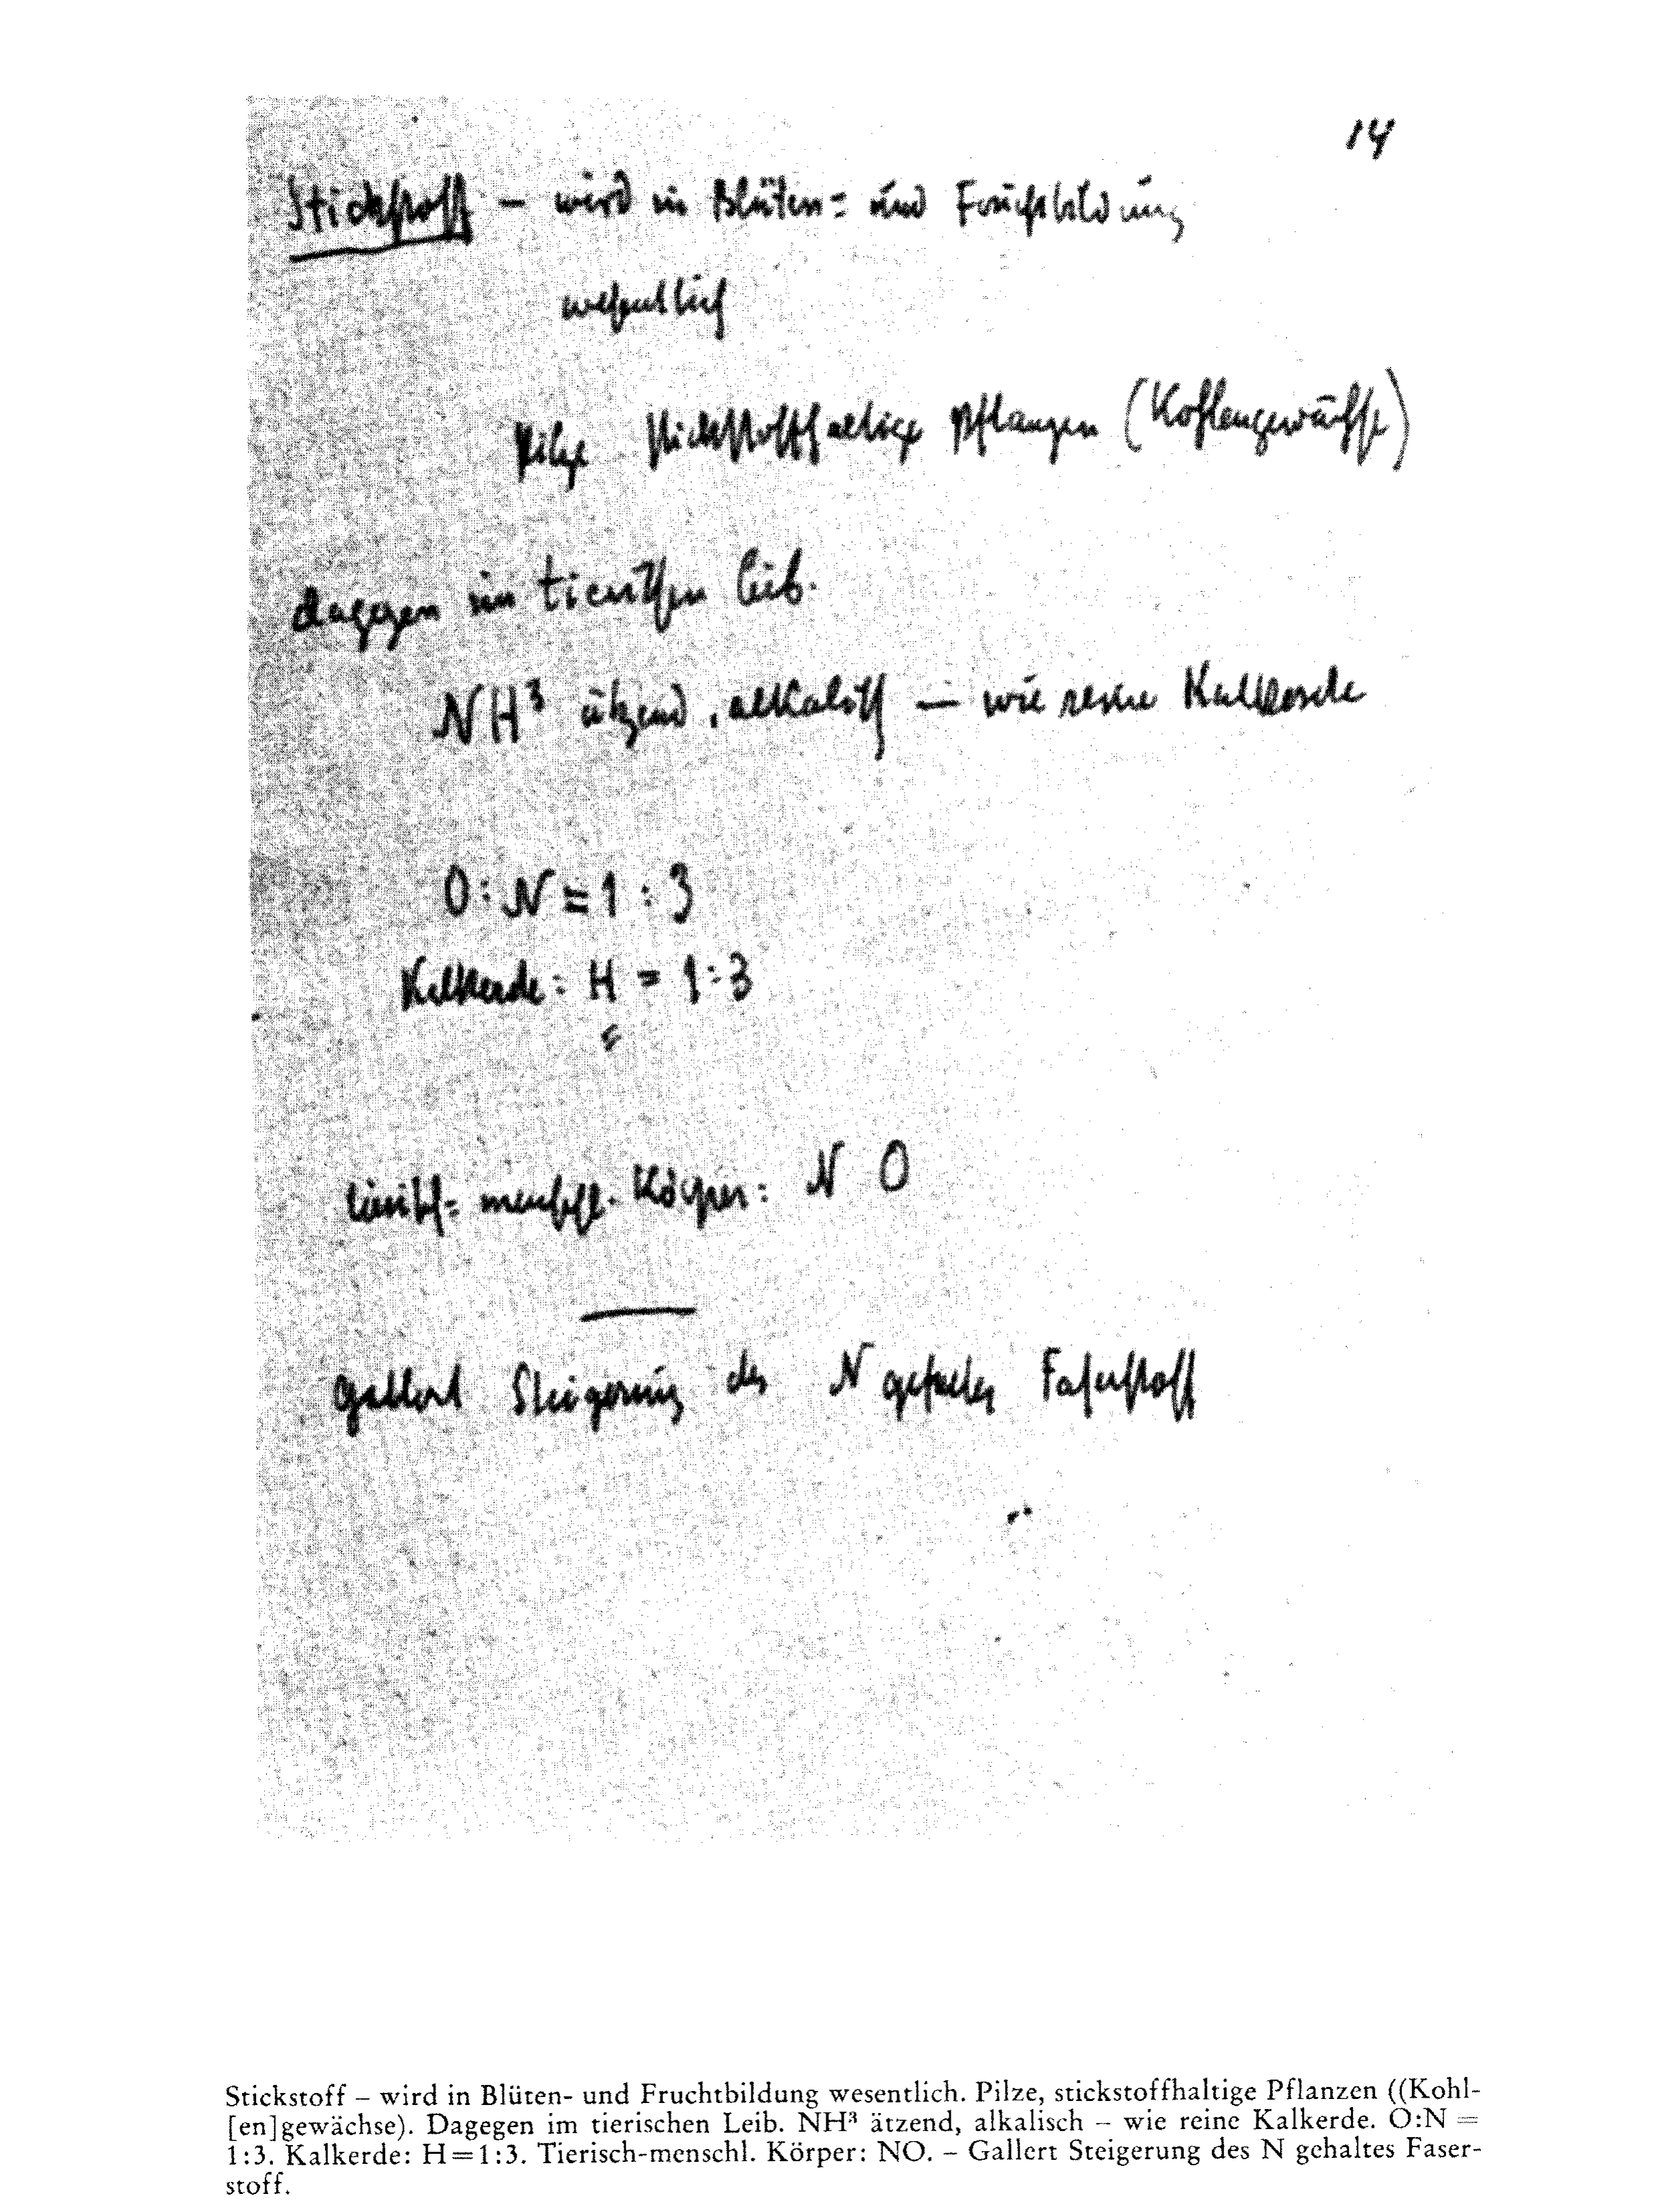 14
Stickstoff – wird in Blüten= und Fruchtbildung
wesentlich
Pilze stickstoffhaltige Pflanzen (Kohlengewächse)
dagegen im tierischen Leib.
NH³ ätzend, alkalisch — wie reine Kalkerde
O : N = 1 : 3
Kalkerde : H = 1 : 3
tierisch= menschl. Körper : N O
Gallert Steigerung des N gehaltes Faserstoff
Stickstoff – wird in Blüten- und Fruchtbildung wesentlich. Pilze, stickstoffhaltige Pflanzen ((Kohl-
[en]gewächse). Dagegen im tierischen Leib. NH³ ätzend, alkalisch – wie reine Kalkerde. O:N =
1:3. Kalkerde: H=1:3. Tierisch-menschl. Körper: NO. – Gallert Steigerung des N gehaltes Faser-
stoff.